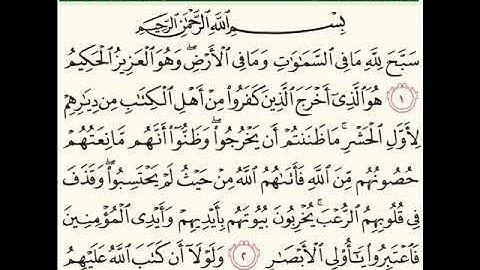 بِسْمِ اللَّهِ الرَّحْمَٰنِ الرَّحِيمِ
سَبَّحَ لِلَّهِ مَا فِي السَّمَاوَاتِ وَمَا فِي الْأَرْضِ ۖ وَهُوَ الْعَزِيزُ الْحَكِيمُ
١ هُوَ الَّذِي أَخْرَجَ الَّذِينَ كَفَرُوا مِنْ أَهْلِ الْكِتَابِ مِن دِيَارِهِمْ
لِأَوَّلِ الْحَشْرِ ۚ مَا ظَنَنتُمْ أَن يَخْرُجُوا ۖ وَظَنُّوا أَنَّهُم مَّانِعَتُهُمْ
حُصُونُهُم مِّنَ اللَّهِ فَأَتَاهُمُ اللَّهُ مِنْ حَيْثُ لَمْ يَحْتَسِبُوا ۖ وَقَذَفَ
فِي قُلُوبِهِمُ الرُّعْبَ ۚ يُخْرِبُونَ بُيُوتَهُم بِأَيْدِيهِمْ وَأَيْدِي الْمُؤْمِنِينَ
فَاعْتَبِرُوا يَا أُولِي الْأَبْصَارِ ٢ وَلَوْلَا أَن كَتَبَ اللَّهُ عَلَيْهِمُ